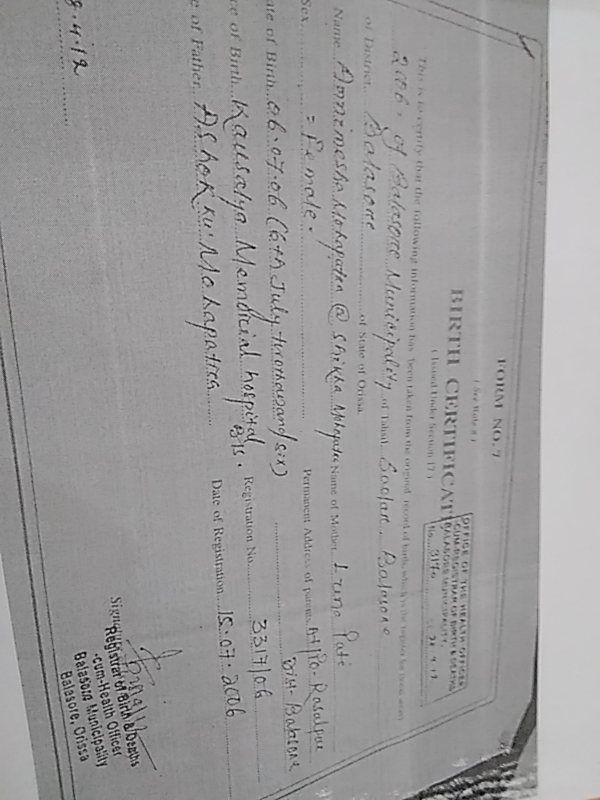 FORM NO. 7
( See Rule 8 )
BIRTH CERTIFICAT
( Issued Under Section 17 )
OFFICE OF THE HEALTH OFFICER
-CUM-REGISTRAR OF BIRTH & DEATHS
BALASORE MUNICIPALITY,
No. 3170
This is to certify that the following information has been taken from the original record of birth, which is the register for
2006. of Balasore Municipality of Tahsil Sadar, Balasore
of District Balasore of State of Orissa.
Name Annimesha Mohapatra @ Shikha Mohapatra Name of Mother Luna Pati
Sex = Female. Permanent Address of parents At/Po- Rasalpur
Dist- Balasore
ate of Birth 06.07.06 (6th July-twothousand six)
ce of Birth Kausalya Memorial hospital Bls. Registration No. 3317/06
e of Father Ashok ku. Mohapatra Date of Registration 15.07.2006
8.4.12
Registrar of Birth & Deaths
-cum-Health Officer
Balasore Municipality
Balasore, Orissa